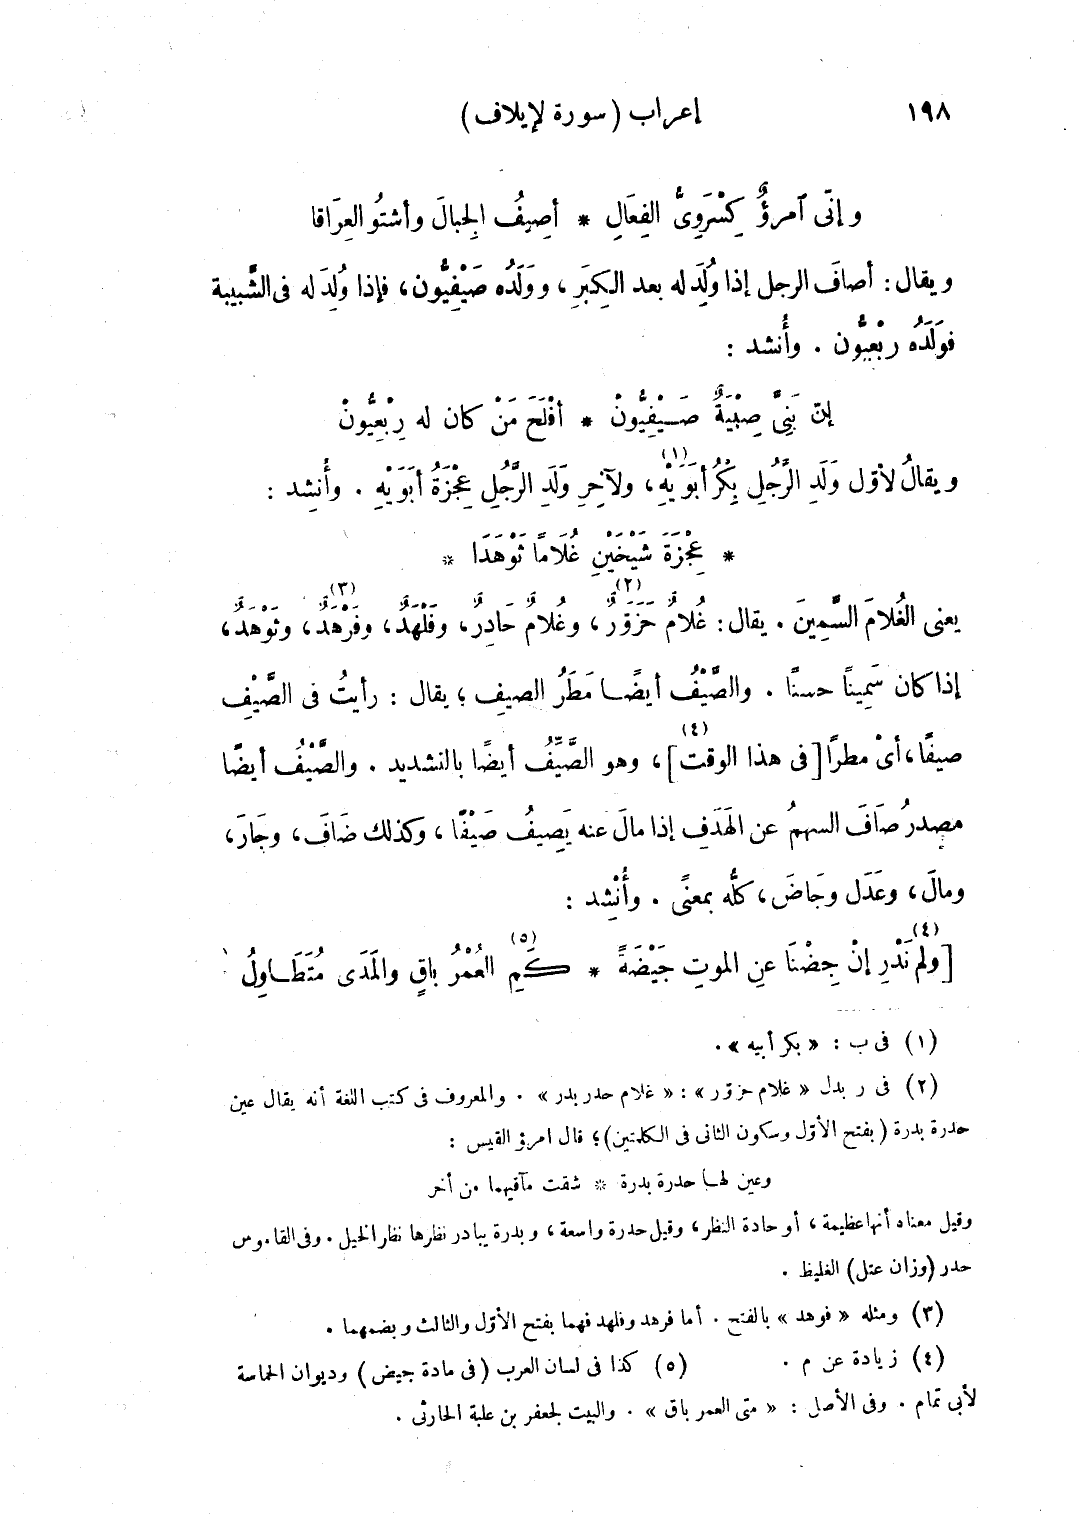 ١٩٨ إعراب (سورة لإيلاف)
وإنّى ٱمرؤٌ كِسْرَوِىُّ الفِعَالِ * أصِيفُ الجِبالَ وأشتُو العِرَاقا
ويقال: أصافَ الرجل إذا وُلِدَ له بعد الكِبَرِ، ووَلَدُه صَيْفِيُّون، فإذا وُلِدَ له فى الشَّبيبة
فوَلَدُه رِبْعِيُّون . وأُنشد :
إنّ بَنِىَّ صِبْيَةٌ صَيْفِيُّونْ * أفْلَحَ مَنْ كان له رِبْعِيُّونْ
ويقالُ لأوّل وَلَدِ الرَّجُلِ بِكْرُ أبَوَيْهِ(١)، ولآخِرِ وَلَدِ الرَّجُلِ عِجْزَةُ أبَوَيْهِ . وأُنشِد :
* عِجْزَةَ شَيْخَيْنِ غُلَامًا ثَوْهَدَا *
يعنى الغُلامَ السَّمِينَ . يقال: غُلامٌ حَزَوَّرٌ(٢)، وغُلامٌ حَادِرٌ، وفَلْهَدٌ، وفَرْهَدٌ(٣)، وثَوْهَدٌ،
إذا كان سَمِينًا حسنًا . والصَّيْفُ أيضًا مَطَرُ الصيفِ؛ يقال : رأيتُ فى الصَّيْفِ
صيفًا، أىْ مطرًا [فى هذا الوقت(٤)]، وهو الصَّيِّفُ أيضًا بالتشديد . والصَّيْفُ أيضًا
مصدرُ صَافَ السهمُ عن الهَدَفِ إذا مالَ عنه يَصِيفُ صَيْفًا، وكذلك ضَافَ، وجَارَ،
ومالَ، وعَدَل وجَاضَ، كلُّه بمعنًى . وأُنْشِد :
(٤)[ولم نَدْرِ إنْ جِضْنَا عنِ الموتِ جَيْضَةً * كَمِ(٥) العُمْرُ باقٍ والمَدَى مُتَطَاوِلُ
(١) فى ب : « بكر أبيه » .
(٢) فى ر بدل « غلام حزوّر » : « غلام حدر بدر » . والمعروف فى كتب اللغة أنه يقال عين
حدرة بدرة (بفتح الأوّل وسكون الثانى فى الكلمتين)؛ قال امرؤ القيس :
وعين لها حدرة بدرة * شقت مآقيهما من أخر
وقيل معناه أنها عظيمة، أو حادة النظر، وقيل حدرة واسعة، وبدرة يبادر نظرها نظار الخيل . وفى القاموس
حدر (وزان عتل) الغليظ .
(٣) ومثله « فوهد » بالفتح . أما فرهد وفلهد فهما بفتح الأوّل والثالث وبضمهما .
(٤) زيادة عن م . (٥) كذا فى لسان العرب (فى مادة جيض) وديوان الحماسة
لأبى تمام . وفى الأصل : « متى العمر باق » . والبيت لجعفر بن علبة الحارثى .